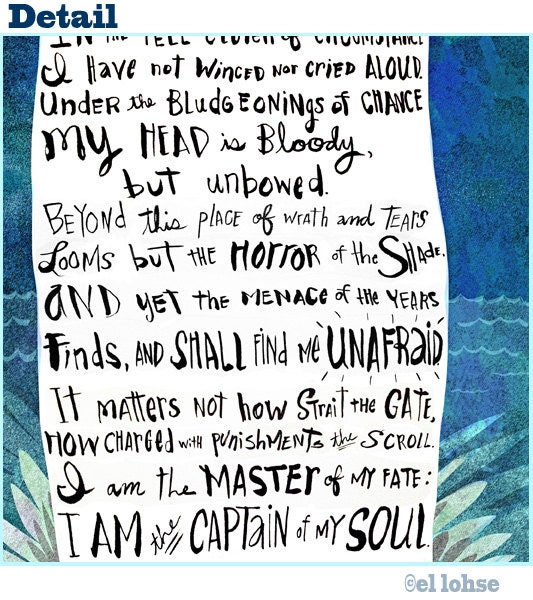 Detail
IN THE FELL CLUTCH of CIRCUMSTANCE
I HavE not WINCED NOR CRiED ALOUD.
UNDER the BLUDGEONINgs of CHANCE
My HEAD is Bloody,
but unbowed.
BEYOND this PLACE of WRATH and TEARS
LOOMS but THE HORROR of the SHADE,
AND yET the MENACE of the YEARS
FiNds, AND SHALL FINd ME UNAFRaiD
IT MATTERS NOT how STRAIT THE GATE,
HOW CHARGEd with PUNISHMENTS the SCROLL.
I am the MASTER of MY FATE:
I AM the CAPTAIN of MY SOUL.
©el lohse